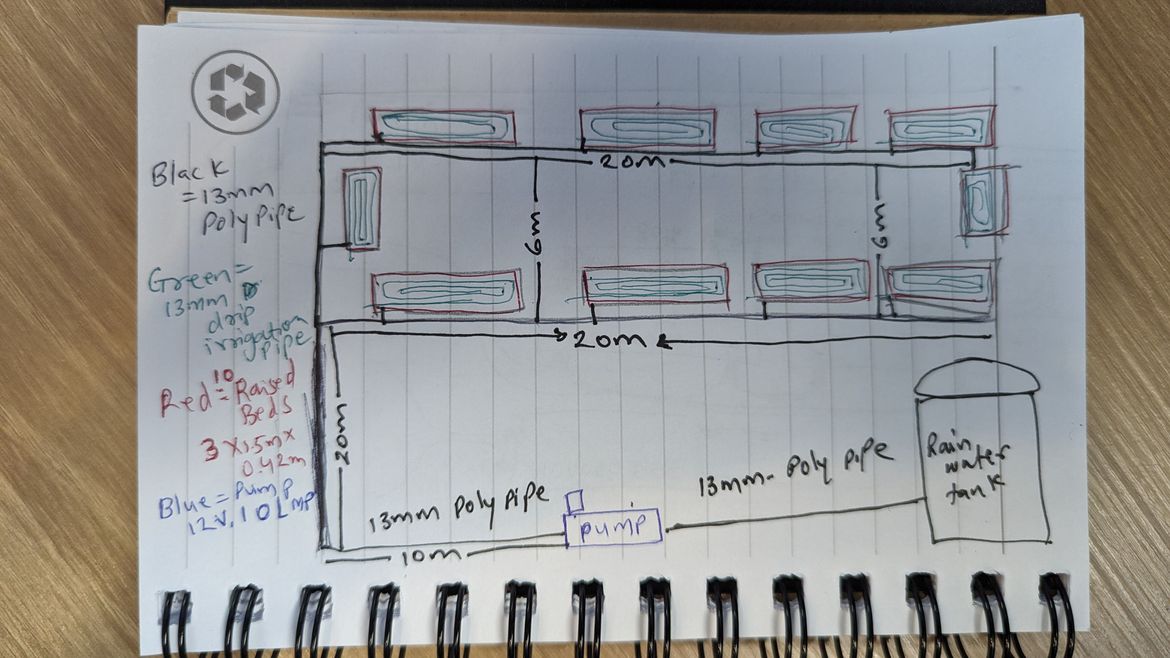 Black
= 13mm
Poly Pipe
Green =
13mm
drip
irrigation
pipe
Red = 10 Raised
Beds
3 x 1.5m x
0.42m
Blue = Pump
12V. 10L MP
20m
6m
6m
20m
20m
13mm Poly Pipe
10m
PUMP
13mm- Poly Pipe
Rain
water
tank